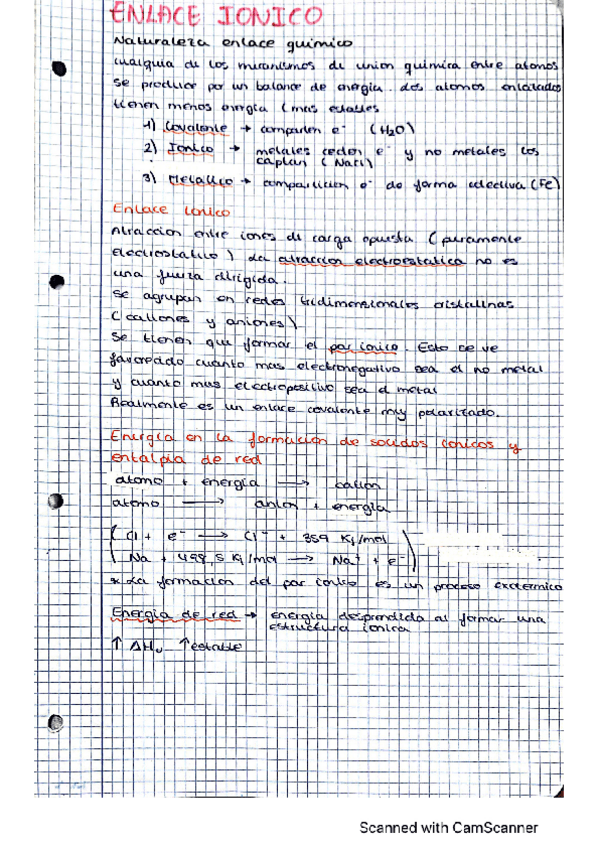 ENLACE IONICO
Naturaleza enlace quimico
cualquia de los mecanismos de union quimica entre atomos
se produce por un balance de energia. dos atomos enlazados
tienen menos energia (mas estables
1) Covalente → comparten e⁻ (H2O)
2) Ionico → metales ceden e⁻ y no metales los
captan (NaCl)
3) Metalico → comparticion e⁻ de forma colectiva (Fe)
Enlace ionico
Atraccion entre iones de carga opuesta (puramente
electrostatico) La atraccion electroestatica no es
una fuerza dirigida.
se agrupan en redes tridimensionales cristalinas
(cationes y aniones)
se tienen que formar el par ionico. Esto se ve
favorecido cuanto mas electronegativo sea el no metal
y cuanto mas electropositivo sea el metal
Realmente es un enlace covalente muy polarizado.
Energía en la formacion de solidos ionicos y
entalpia de red
atomo + energia → cation
atomo → anion + energia
Cl + e⁻ → Cl⁻ + 359 KJ/mol
Na + 498,5 KJ/mol → Na⁺ + e⁻
* La formacion del par ionico es un proceso exotermico
Energia de red → energia desprendida al formar una
estructura ionica
↑ ΔHu ↑estable
Scanned with CamScanner